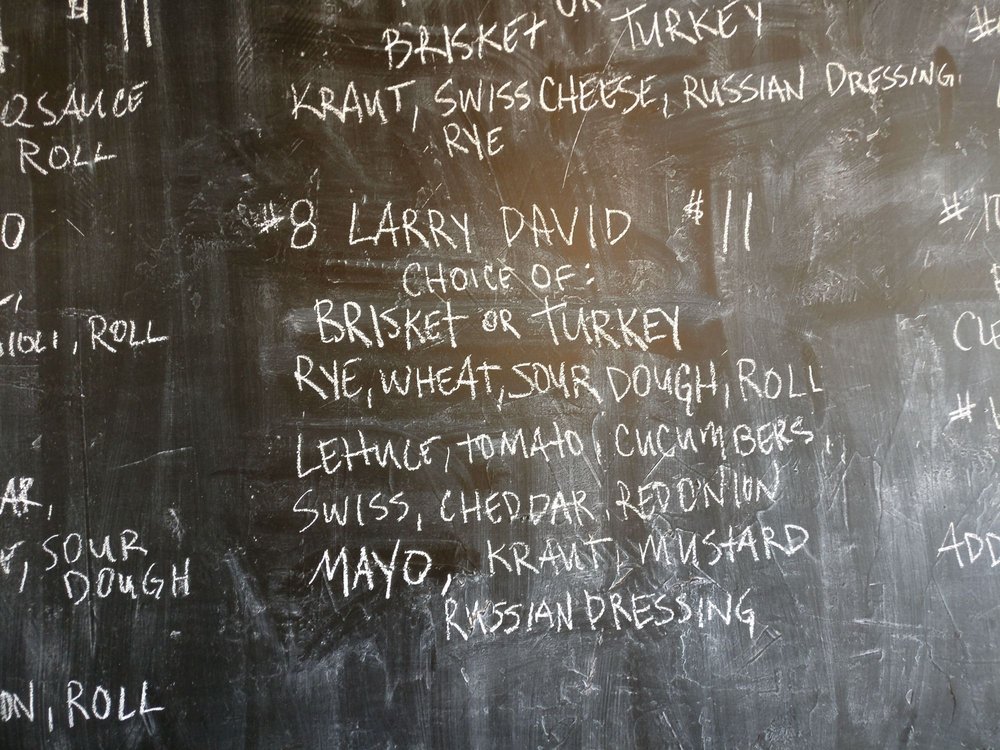 $11
OR
BRISKET TURKEY
KRAUT, SWISS CHEESE, RUSSIAN DRESSING
RYE
SAUCE
ROLL
#8 LARRY DAVID $11
CHOICE OF:
BRISKET OR TURKEY
RYE, WHEAT, SOUR DOUGH, ROLL
LETTUCE, TOMATO, CUCUMBERS,
SWISS, CHEDDAR, RED ONION
MAYO, KRAUT, MUSTARD
RUSSIAN DRESSING
, ROLL
, SOUR
DOUGH
, ROLL
ADD